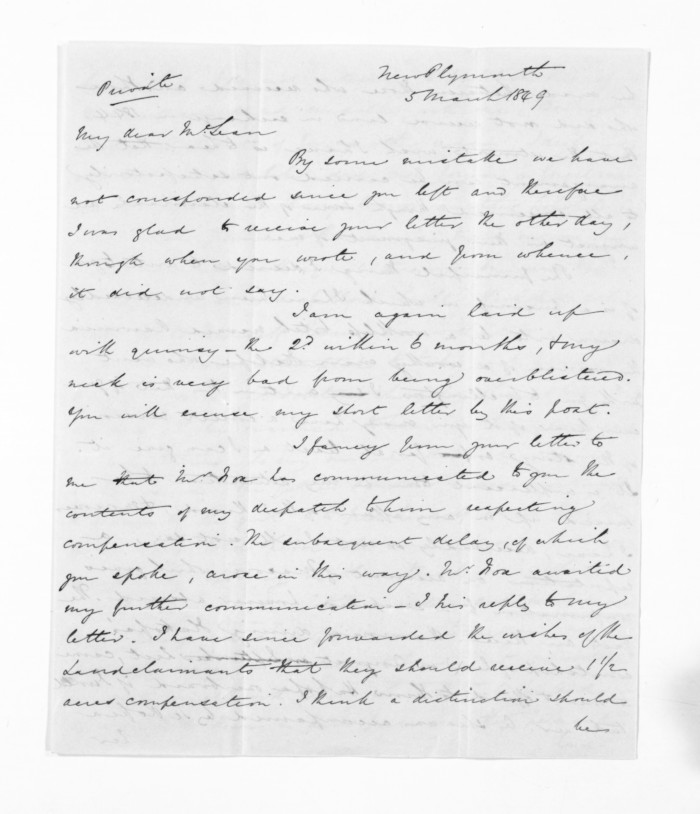 New Plymouth
Private
5 March 1849
My dear McLean
By some mistake we have
not corresponded since you left and therefore
I was glad to receive your letter the other day,
though when you wrote, and from whence,
it did not say.
I am again laid up
with quinsy - the 2d within 6 months, & my
neck is very bad from being overblistered.
You will excuse my short letter by this post.
I fancy from your letter to
me that Mr. Fox has communicated to you the
contents of my despatch to him respecting
compensation. The subsequent delay, of which
you spoke, arose in this way. Mr. Fox awaited
my further communication - I his reply to my
letter. I have since forwarded the wishes of the
Landclaimants that they should receive 1 1/2
acres compensation. I think a distinction should
be